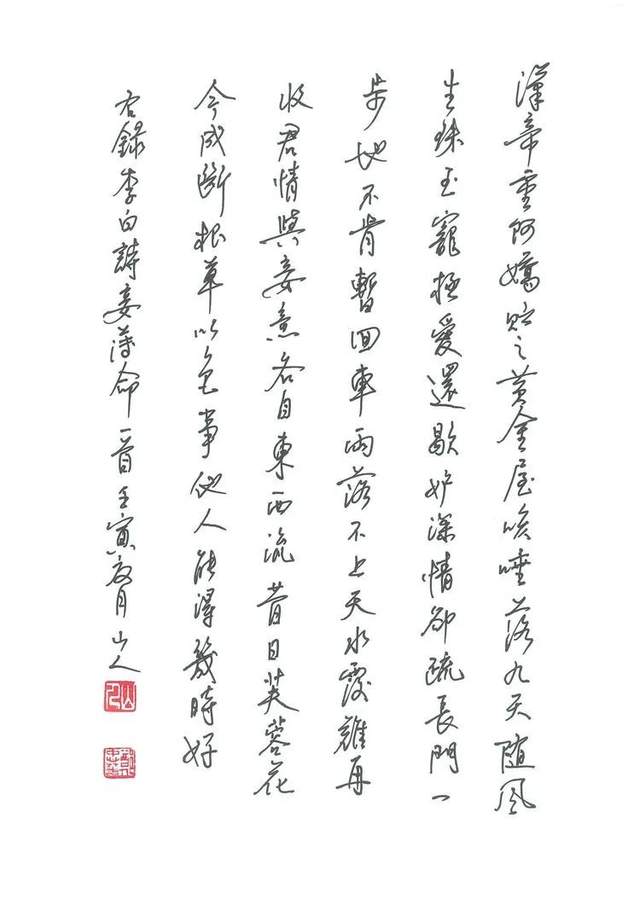 漢帝重阿嬌貯之黃金屋咳唾落九天随風
生珠玉寵極愛還歇妒深情卻疏長門一
步地不肯暫回車雨落不上天水覆難再
收君情與妾意各自東西流昔日芙蓉花
今成斷根草以色事他人能得幾時好
右錄李白詩妾薄命一首壬寅夏月山人